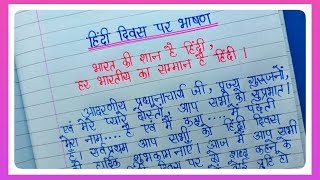 हिंदी दिवस पर भाषण
भारत की शान है हिंदी,
हर भारतीय का सम्मान है हिंदी।
आदरणीय प्रधानाचार्य जी, पूज्य गुरुजनों,
एवं मेरे प्यारे दोस्तों, आप सभी को सुप्रभात।
मेरा नाम ... है एवं मैं कक्षा .... में पढ़ती
हूँ। सर्वप्रथम आप सभी को हिंदी दिवस
की हार्दिक शुभकामनाएँ। आज मैं आप सभी
दिवस पर दो शब्द कहने के